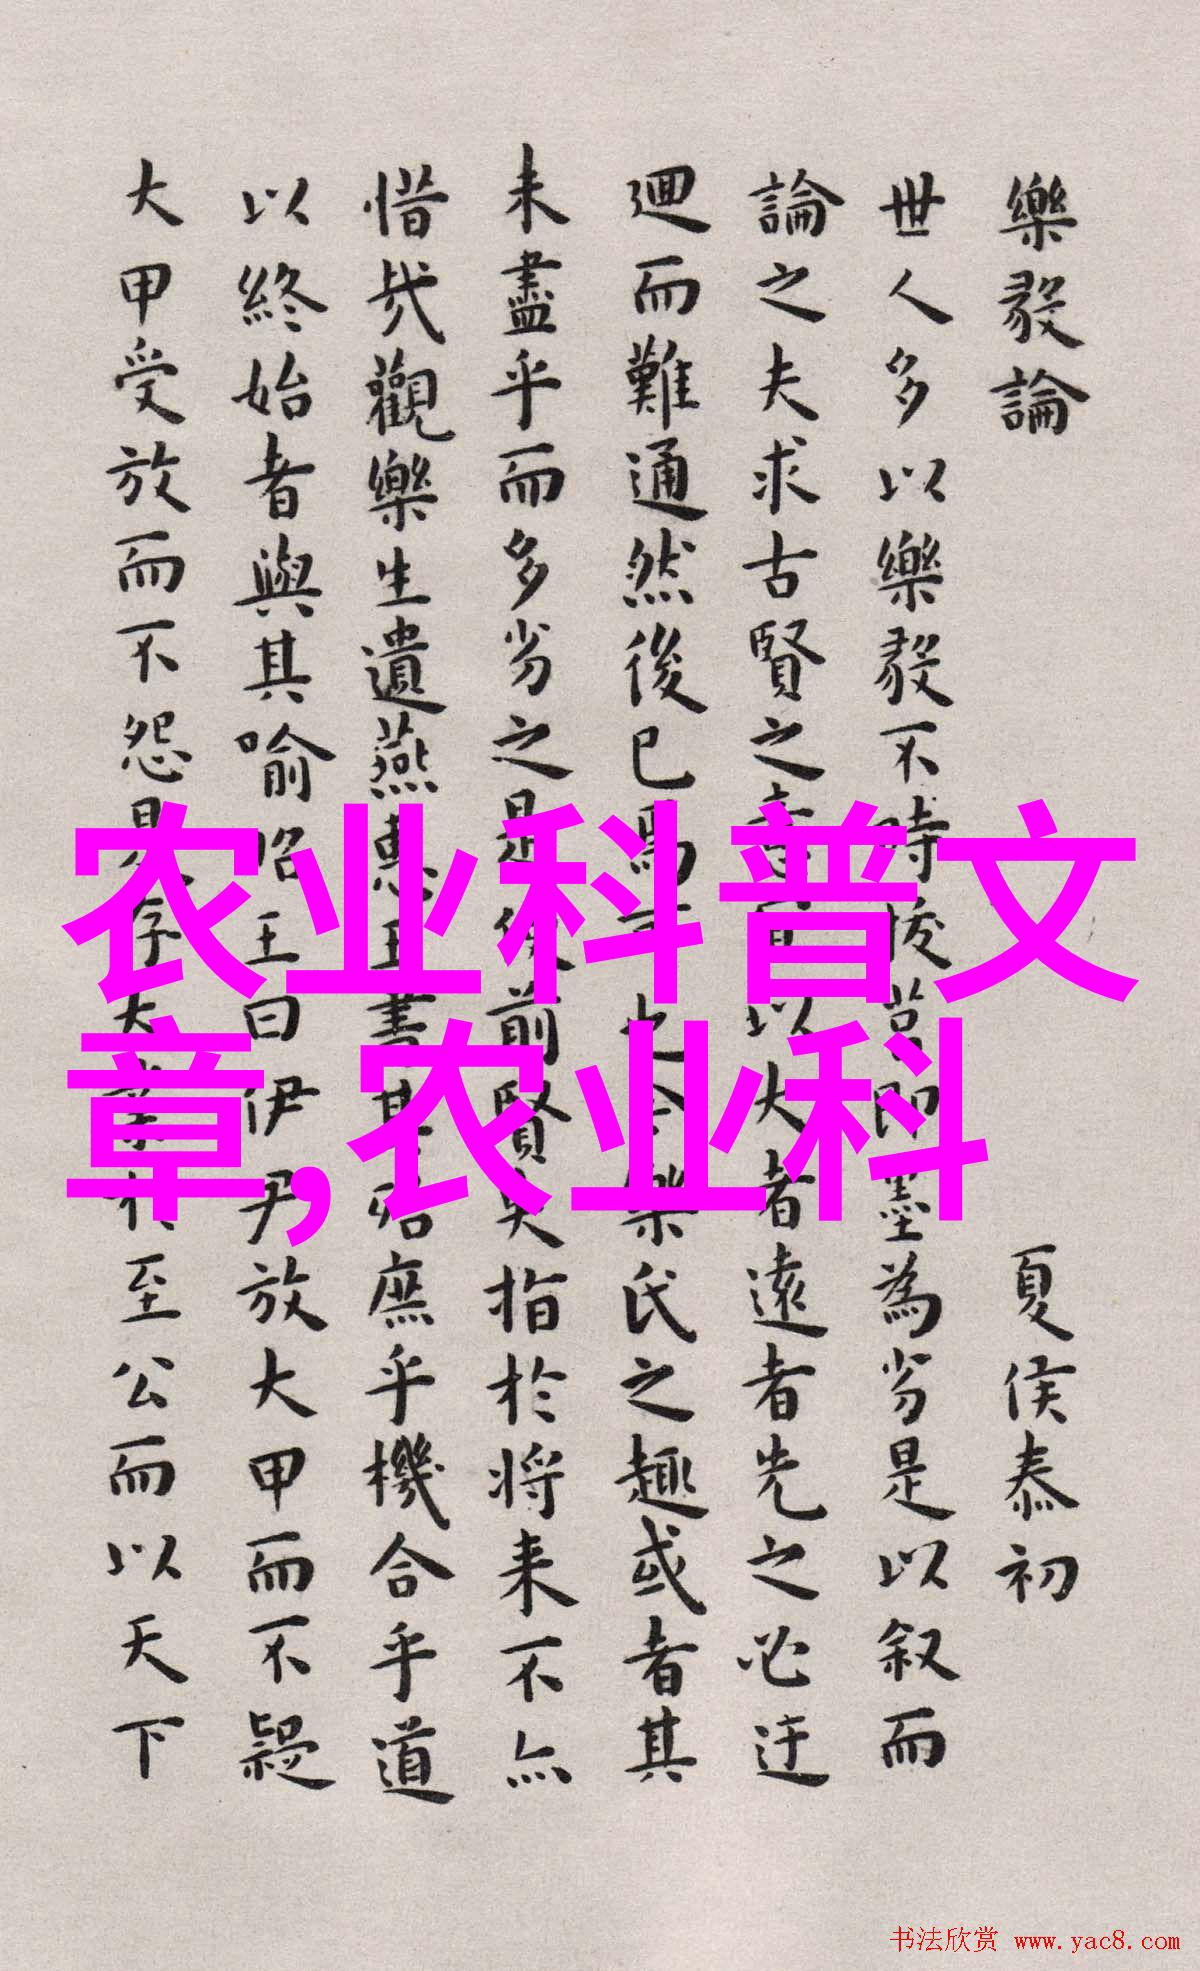 樂毅論 夏侯泰初
世人多以樂毅不時拔莒即墨為劣是以叙而
論之夫求古賢之意宜以大者遠者先之必迂
迴而難通然後已焉可也今樂氏之趣或者其
未盡乎而多劣之是使前賢失指於将来不亦
惜哉觀樂生遺燕惠王書其殆庶乎機合乎道
以終始者與其喻昭王曰伊尹放大甲而不疑
大甲受放而不怨是存大業於至公而以天下
农业科普文
章,农业科
书法欣赏 www.yac8.com